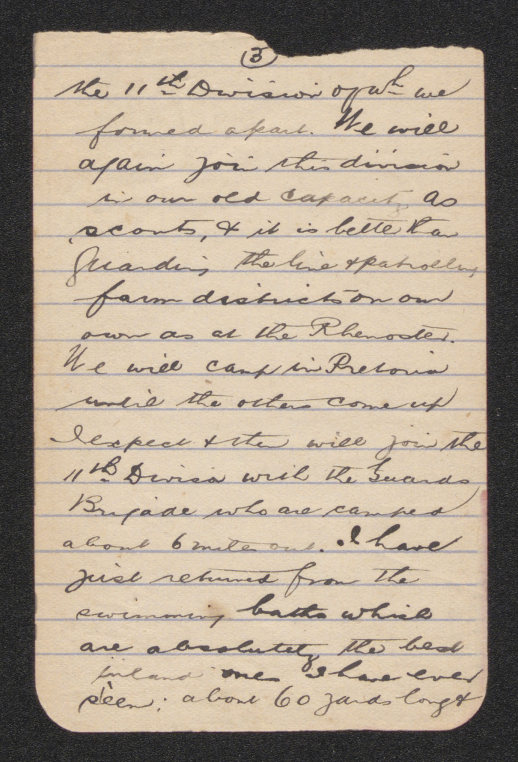 (3)
the 11th Division of wh we
formed a part. We will
again join this division
in our old capacity as
scouts, & it is better than
guarding the line & patrolling
farm districts on our
own as at the Rhenoster.
We will camp in Pretoria
until the others come up
I expect & then will join the
11th Divison with the Guards
Brigade who are camped
about 6 miles out. I have
just returned from the
swimming baths which
are absolutely the best
inland ones I have ever
seen; about 60 yards long &